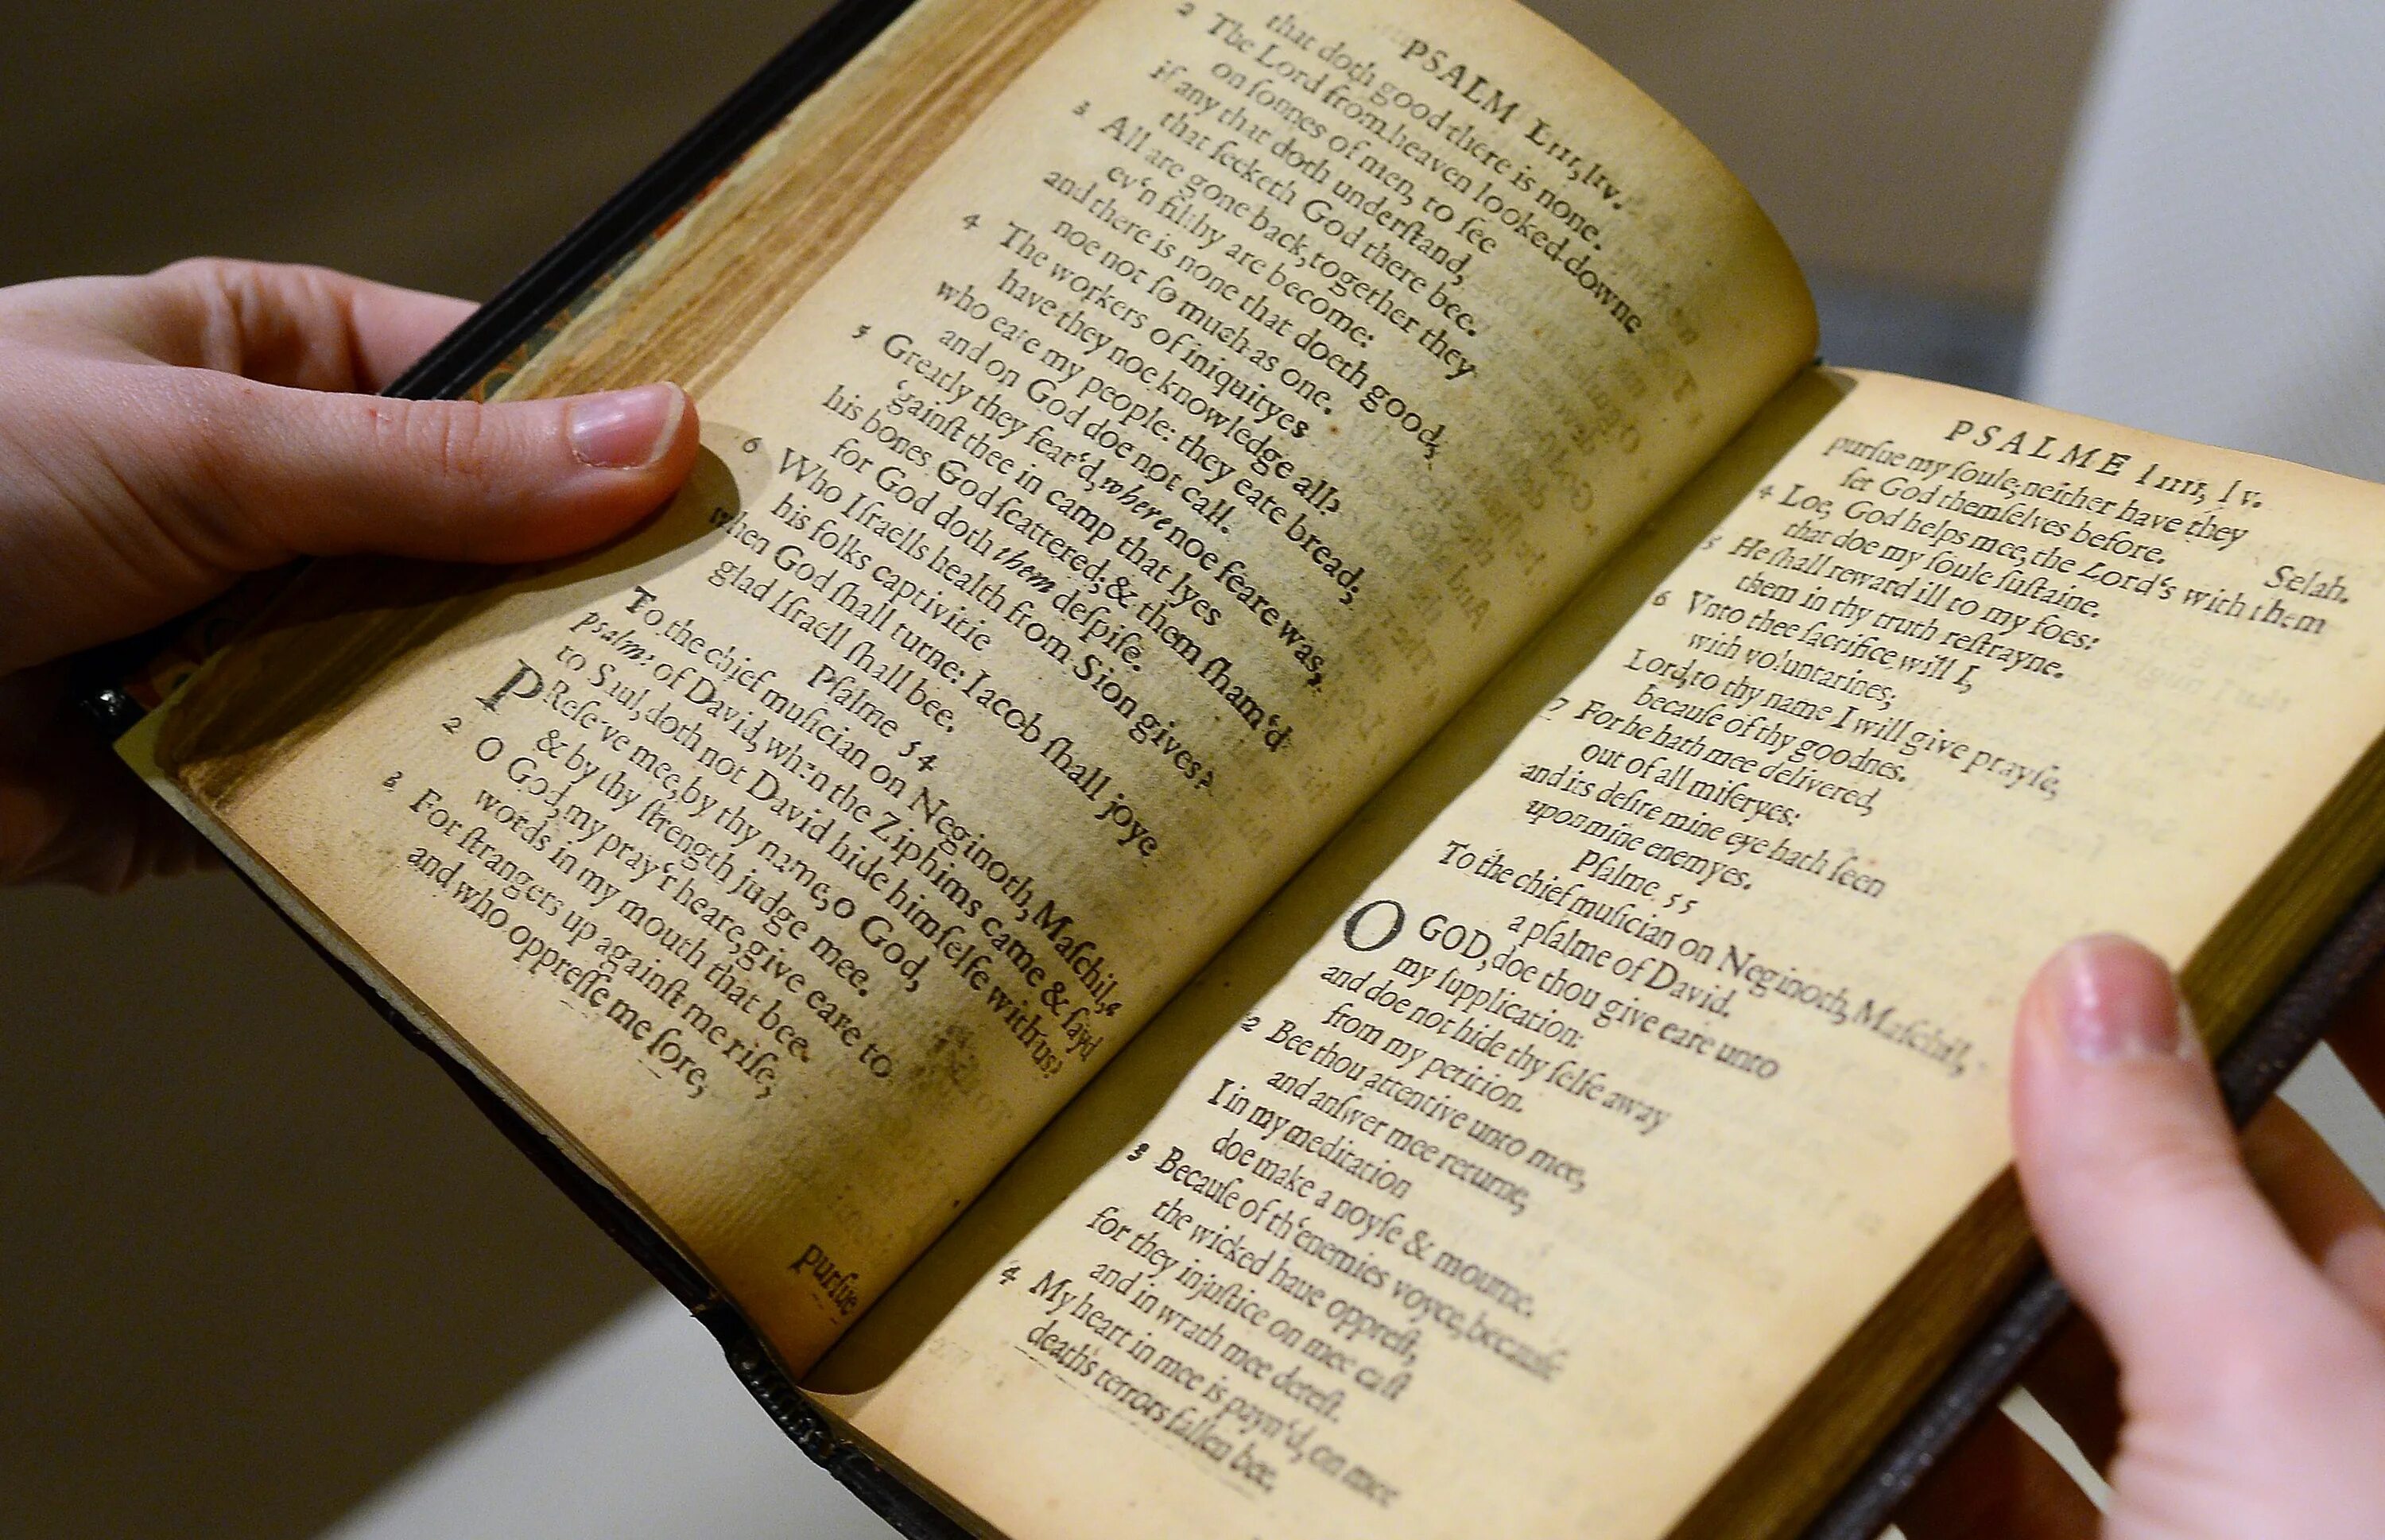 PSALM Liii, liv.
that doth good there is none.
2 The Lord from heaven looked downe
on ſonnes of men, to ſee
if any that doth underſtand,
that ſeeketh God there bee.
3 All are gone back, together they
ev'n filthy are become:
and there is none that doeth good,
noe not ſo much as one.
4 The workers of iniquityes
have they noe knowledge all?
who eate my people: they eate bread,
and on God doe not call.
5 Greatly they fear'd, where noe feare was,
'gainſt thee in camp that lyes
his bones God ſcattered; & them ſham'd
for God doth them deſpiſe.
6 Who Iſraells health from Sion gives?
his folks captivitie
when God ſhall turne: Iacob ſhall joye
glad Iſraell ſhall bee.
Pſalme 54
To the chief muſician on Neginoth, Maſchil, a
psalm: of David, when the Ziphims came & ſayd
to Saul, doth not David hide himſelfe with us?
PReſerve mee, by thy name, o God,
& by thy ſtrength judge mee.
2 O God, my pray'r heare, give eare to
words in my mouth that bee.
3 For ſtrangers up againſt me riſe,
and who oppreſſe me ſore,
purſue
PSALME liiii, lv.
purſue my ſoule; neither have they
ſet God themſelves before. Selah.
4 Loe, God helps mee, the Lord's with them
that doe my ſoule ſuſtaine.
5 He ſhall reward ill to my foes:
them in thy truth reſtrayne.
6 Vnto thee ſacrifice will I,
with voluntarines;
Lord, to thy name I will give prayſe,
becauſe of thy goodnes.
7 For he hath mee delivered,
out of all miſeryes:
and its deſire mine eye hath ſeen
upon mine enemyes.
Pſalme. 55
To the chief muſician on Neginoth, Maſchil,
a pſalme of David.
O GOD, doe thou give eare unto
my ſupplication:
and doe not hide thy ſelfe away
from my petition.
2 Bee thou attentive unto mee,
and anſwer mee returne,
I in my meditation
doe make a noyſe & mourne.
3 Becauſe of th'enemies voyce, becauſe
the wicked haue oppreſt,
for they injuſtice on mee caſt
and in wrath mee deteſt.
4 My heart in mee is payn'd, on mee
deaths terrors fallen bee.